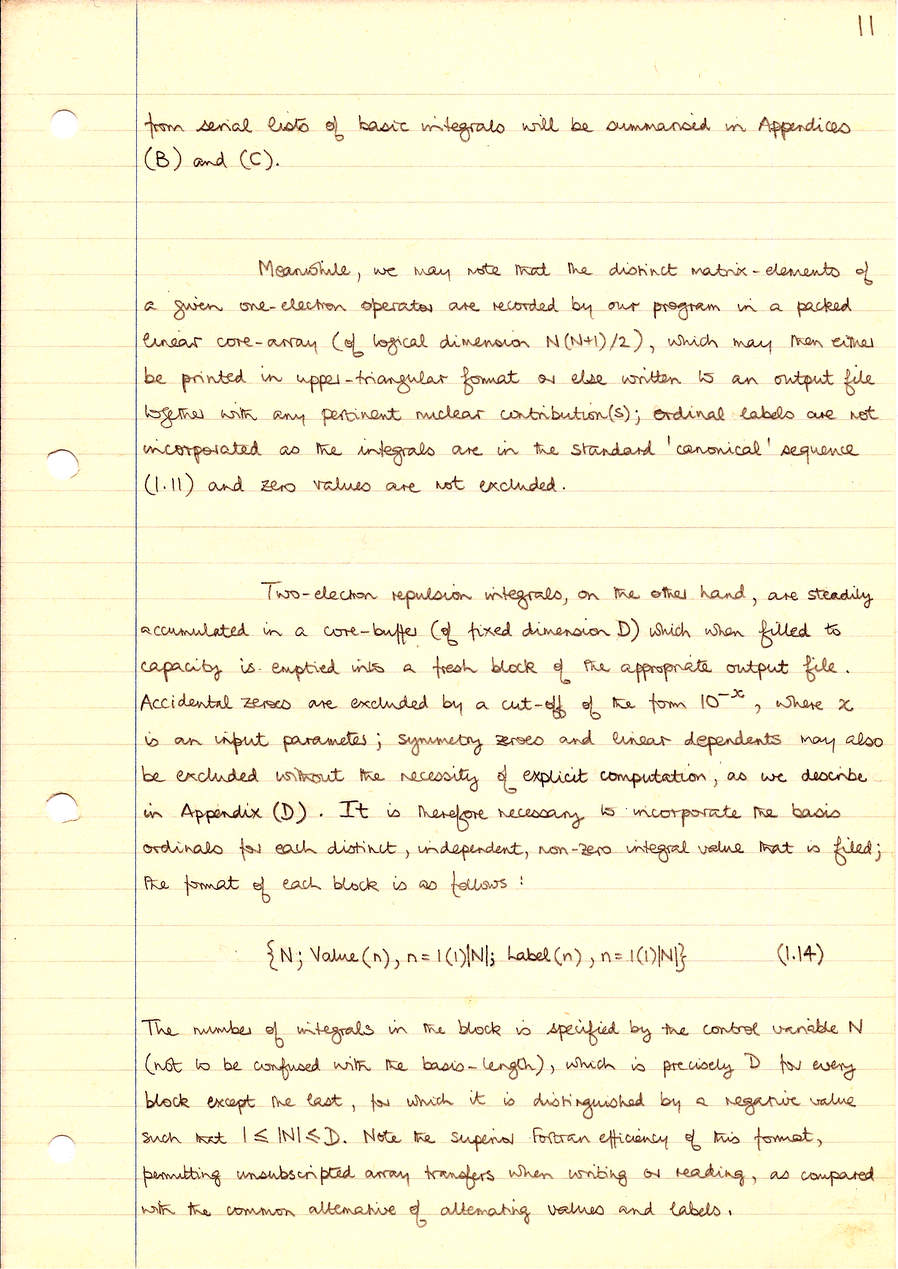 11
from serial lists of basic integrals will be summarised in Appendices
(B) and (C).
Meanwhile, we may note that the distinct matrix-elements of
a given one-electron operator are recorded by our program in a packed
linear core-array (of logical dimension N(N+1)/2), which may then either
be printed in upper-triangular format or else written to an output file
together with any pertinent nuclear contribution(s); ordinal labels are not
incorporated as the integrals are in the standard 'canonical' sequence
(1.11) and zero values are not excluded.
Two-electron repulsion integrals, on the other hand, are steadily
accumulated in a core-buffer (of fixed dimension D) which when filled to
capacity is emptied into a fresh block of the appropriate output file.
Accidental zeroes are excluded by a cut-off of the form 10⁻ˣ, where x
is an input parameter; symmetry zeroes and linear dependents may also
be excluded without the necessity of explicit computation, as we describe
in Appendix (D). It is therefore necessary to incorporate the basis
ordinals for each distinct, independent, non-zero integral value that is filed;
the format of each block is as follows:
{N; Value(n), n=1(1)|N|; Label(n), n=1(1)|N|} (1.14)
The number of integrals in the block is specified by the control variable N
(not to be confused with the basis-length), which is precisely D for every
block except the last, for which it is distinguished by a negative value
such that 1 ≤ |N| ≤ D. Note the superior Fortran efficiency of this format,
permitting unsubscripted array transfers when writing or reading, as compared
with the common alternative of alternating values and labels.